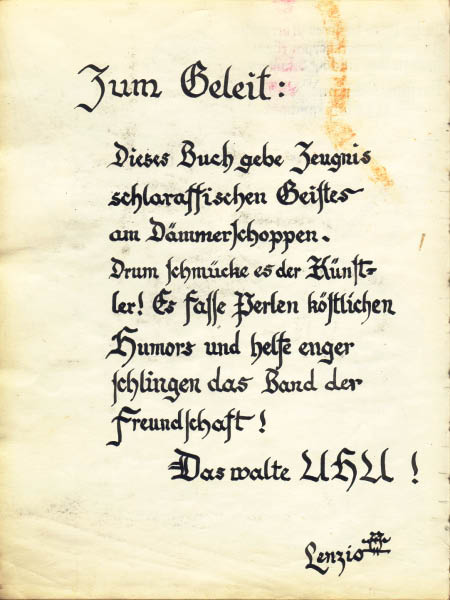 Zum Geleit:
Dieses Buch gebe Zeugnis
schlaraffischen Geiſtes
am Dämmerſchoppen.
Drum ſchmücke es der Künſt-
ler! Es faſſe Perlen köſtlichen
Humors und helfe enger
ſchlingen das Band der
Freundſchaft!
Das walte UHU!
Lenzio